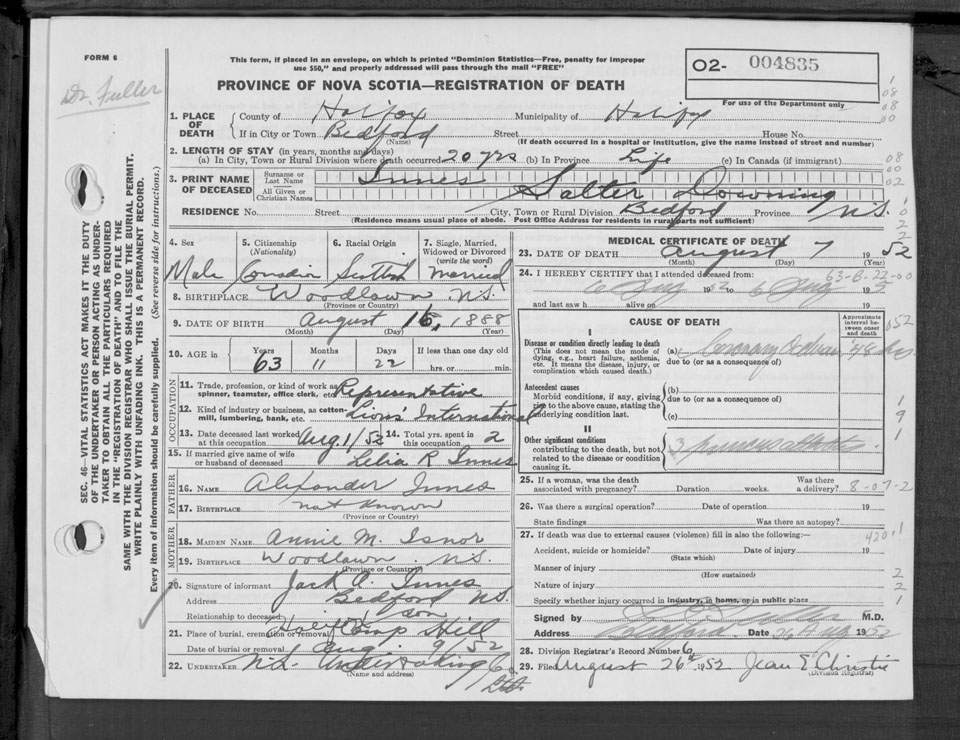 FORM 6
This form, if placed in an envelope, on which is printed "Dominion Statistics—Free, penalty for improper
use $50," and properly addressed will pass through the mail "FREE"
O2- 004835
For use of the Department only
PROVINCE OF NOVA SCOTIA—REGISTRATION OF DEATH
Dr. Fuller
SEC. 46—VITAL STATISTICS ACT MAKES IT THE DUTY
OF THE UNDERTAKER OR PERSON ACTING AS UNDER-
TAKER TO OBTAIN ALL THE PARTICULARS REQUIRED
IN THE "REGISTRATION OF DEATH" AND TO FILE THE
SAME WITH THE DIVISION REGISTRAR WHO SHALL ISSUE THE BURIAL PERMIT.
WRITE PLAINLY WITH UNFADING INK. THIS IS A PERMANENT RECORD.
Every item of information should be carefully supplied. (See reverse side for instructions.)
1. PLACE OF DEATH County of Halifax Municipality of Halifax
If in City or Town Bedford Street House No.
(Name) (If death occurred in a hospital or institution, give the name instead of street and number)
2. LENGTH OF STAY (in years, months and days)
(a) In City, Town or Rural Division where death occurred 20 yrs (b) In Province Life (c) In Canada (if immigrant)
3. PRINT NAME OF DECEASED Surname or Last Name Innes
All Given or Christian Names Salter Downing
RESIDENCE No. Street City, Town or Rural Division Bedford Province N.S.
(Residence means usual place of abode. Post Office Address for residents in rural parts not sufficient)
4. Sex 5. Citizenship (Nationality) 6. Racial Origin 7. Single, Married, Widowed or Divorced (write the word)
Male Canadian Scottish Married
8. BIRTHPLACE Woodlawn N.S.
(Province or Country)
9. DATE OF BIRTH August 1888
(Month) (Day) (Year)
10. AGE in Years Months Days If less than one day old
63 11 22 hrs. or min.
OCCUPATION
11. Trade, profession, or kind of work as spinner, teamster, office clerk, etc. Representative
12. Kind of industry or business, as cotton-mill, lumbering, bank, etc. Lions' International
13. Date deceased last worked at this occupation Aug 1/52 14. Total yrs. spent in this occupation 2
15. If married give name of wife or husband of deceased Lelia R Innes
FATHER
16. NAME Alexander Innes
17. BIRTHPLACE not known
(Province or Country)
MOTHER
18. MAIDEN NAME Annie M. Isnor
19. BIRTHPLACE Woodlawn N.S.
(Province or Country)
20. Signature of informant Jack A. Innes
Address Bedford N.S.
Relationship to deceased son
21. Place of burial, cremation or removal Halifax Camp Hill
Date of burial or removal Aug. 9/52
22. UNDERTAKER N.S. Undertaking Co
Ltd.
(Name and address)
MEDICAL CERTIFICATE OF DEATH
23. DATE OF DEATH August 7 1952
(Month) (Day) (Year)
63-B-22-00
24. I HEREBY CERTIFY that I attended deceased from:
6 Aug 1952 to 6 Aug 195
and last saw h alive on 19
CAUSE OF DEATH
Approximate interval between onset and death
I
Disease or condition directly leading to death
(This does not mean the mode of dying, e.g., heart failure, asthenia, etc. It means the disease, injury, or complication which caused death.)
(a) Coronary Occlusion 48 hrs
due to (or as a consequence of)
Antecedent causes
Morbid conditions, if any, giving rise to the above cause, stating the underlying condition last.
(b)
due to (or as a consequence of)
(c)
II
Other significant conditions
contributing to the death, but not related to the disease or condition causing it.
3 previous attacks
25. If a woman, was the death associated with pregnancy? Duration weeks. Was there a delivery? 8-07-2
26. Was there a surgical operation? Date of operation 19
State findings Was there an autopsy?
27. If death was due to external causes (violence) fill in also the following:—
4201
Accident, suicide or homicide? Date of injury 19
(State which)
Manner of injury
(How sustained)
Nature of injury
Specify whether injury occurred in industry, in home, or in public place
Signed by M.D.
Address Bedford Date 26 Aug 1952
28. Division Registrar's Record Number 6
29. Filed August 26th 1952 Jean E Christie
(Division Registrar)